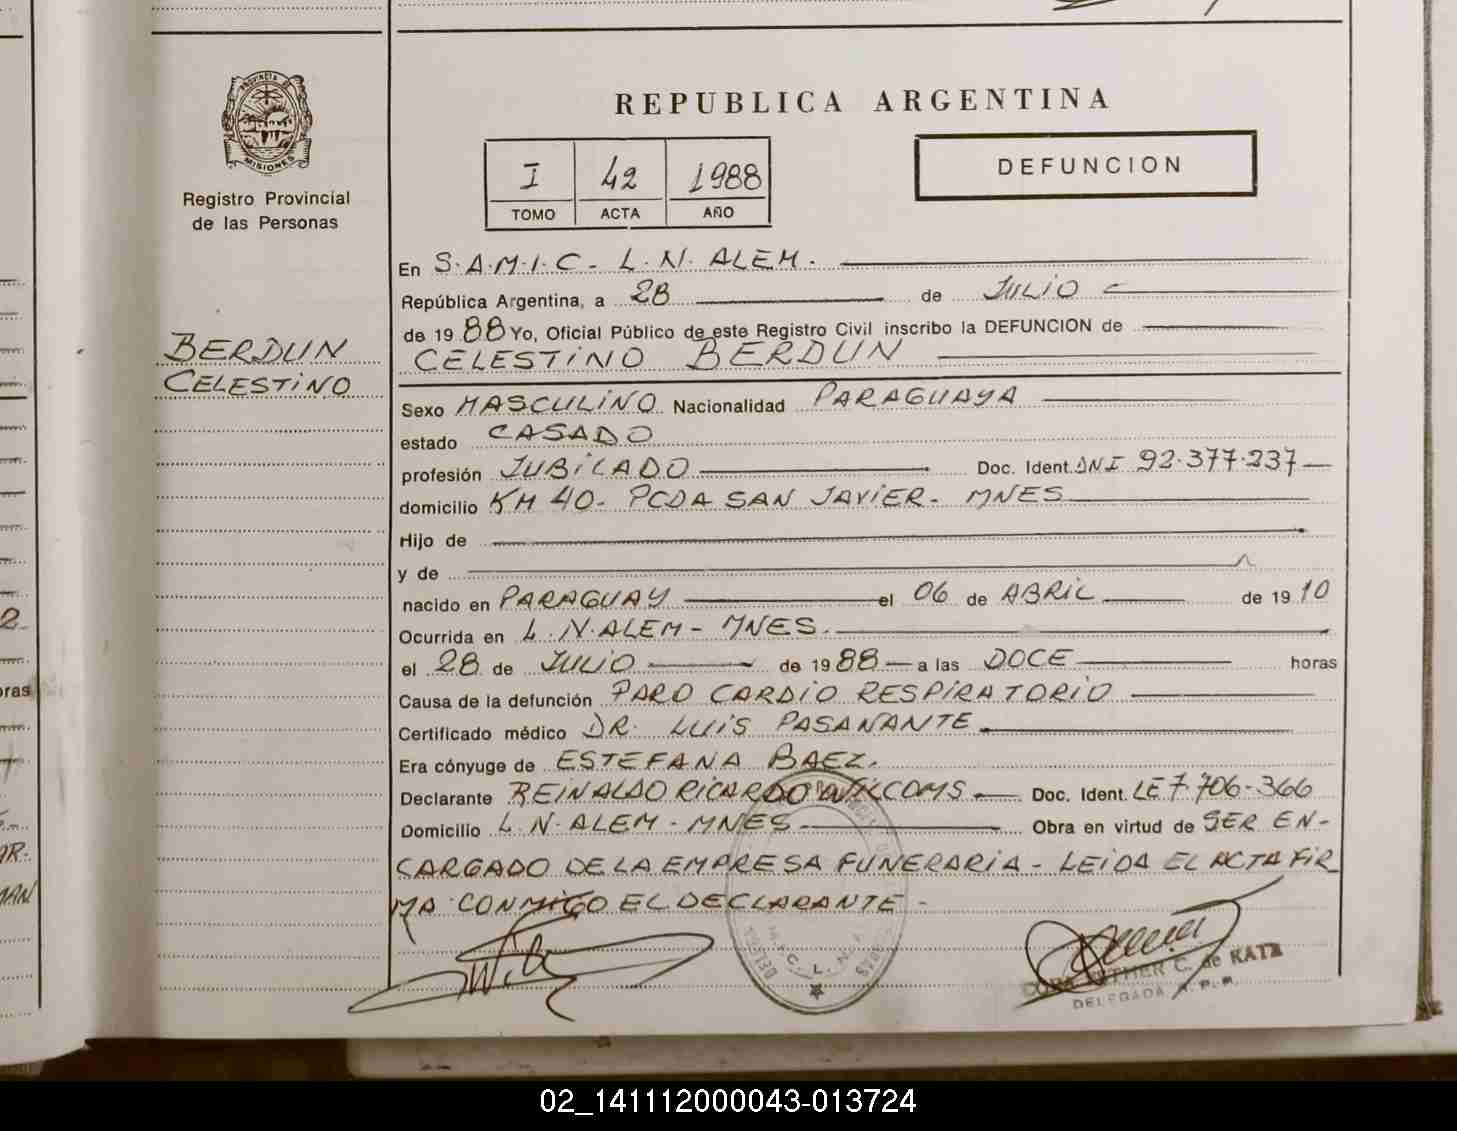 REPUBLICA ARGENTINA
PROVINCIA DE
MISIONES
Registro Provincial
de las Personas
I 42 1988
TOMO ACTA AÑO
DEFUNCION
En S.A.M.I.C - L.N. ALEM.
República Argentina, a 28 de JULIO
de 19 88 Yo, Oficial Público de este Registro Civil inscribo la DEFUNCION de
CELESTINO BERDUN
BERDUN
CELESTINO
Sexo MASCULINO Nacionalidad PARAGUAYA
estado CASADO
profesión JUBILADO Doc. Ident. DNI 92.377.237
domicilio KM 40 - PCDA SAN JAVIER - MNES
Hijo de
y de
nacido en PARAGUAY el 06 de ABRIL de 19 10
Ocurrida en L.N. ALEM - MNES.
el 28 de JULIO de 19 88 a las DOCE horas
Causa de la defunción PARO CARDIO RESPIRATORIO
Certificado médico DR. LUIS PASANANTE
Era cónyuge de ESTEFANA BAEZ.
Declarante REINALDO RICARDO Doc. Ident. LE 7.706-366
Domicilio L.N. ALEM - MNES Obra en virtud de SER EN-
CARGADO DE LA EMPRESA FUNERARIA - LEIDA EL ACTA FIR
MA CONMIGO EL DECLARANTE -
ESTHER C. de KATZ
DELEGADA R.P.P.
02_141112000043-013724